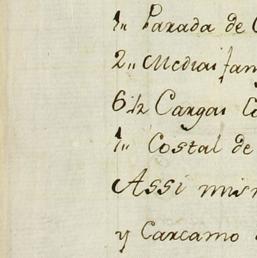 1,, Parada de
2,, Mediai
6 1/2 Cargai
1,, Costal de
Assi
y Carcamo